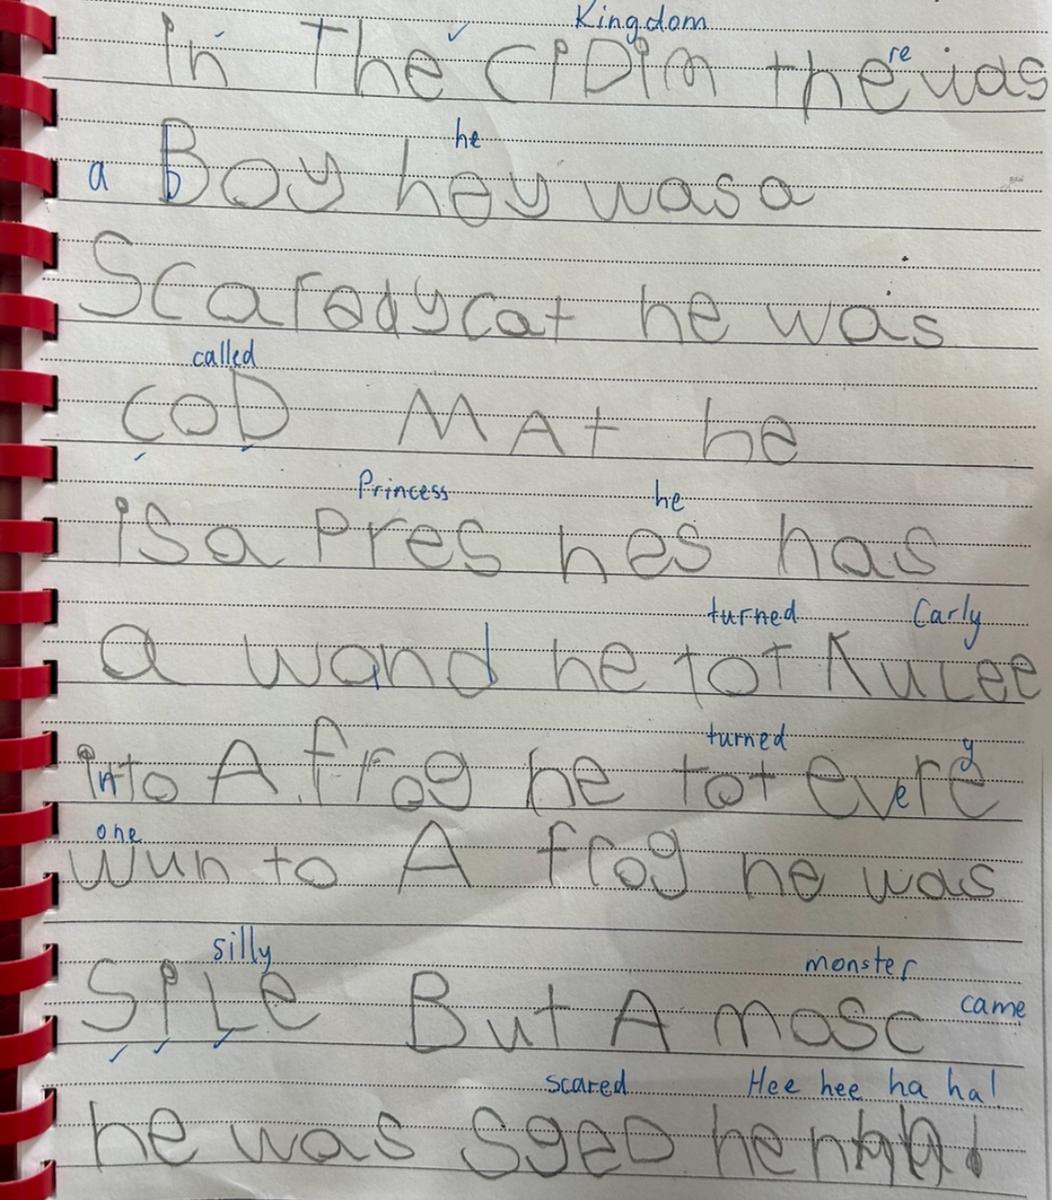 Kingdom
In The CiDim the re was
he
a Boy hey was a
Scaredycat he was
called
COD MAt he
Princess he
isa Pres hes has
turned Carly
a wand he tot Kulee
turned y
into A frog he tot evere
one
wun to A frog he was
silly monster
SiLe But A mosc came
scared Hee hee ha ha!
he was SgeD he